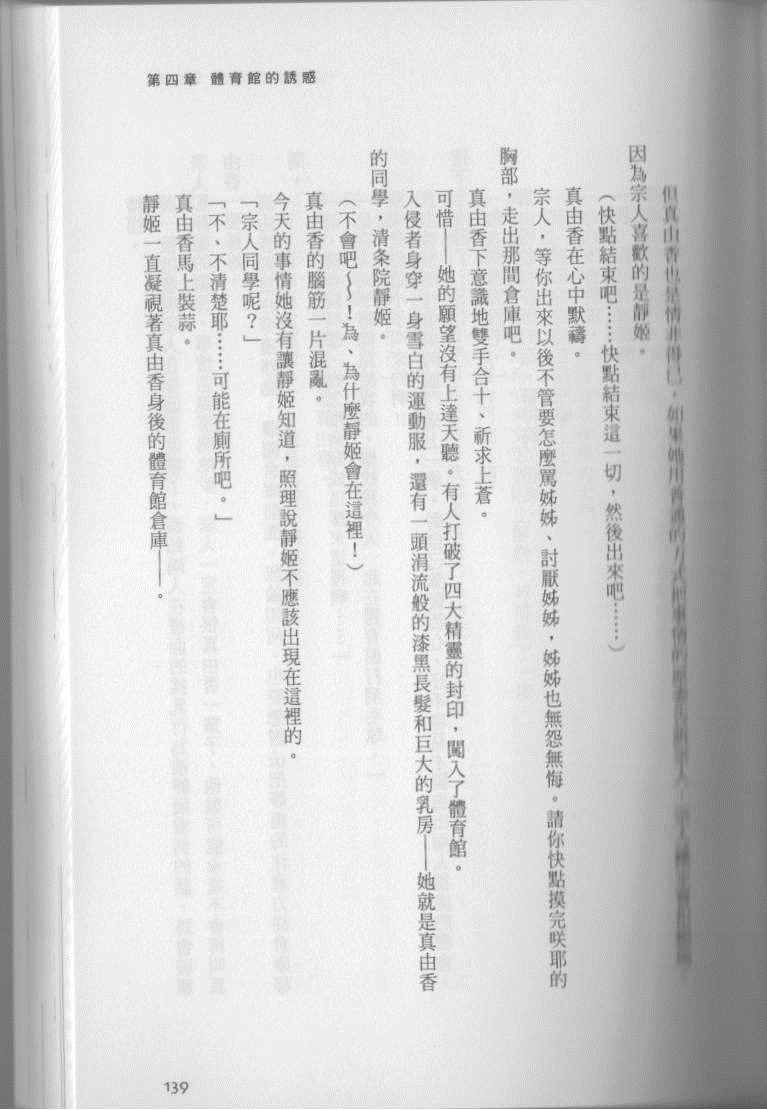 第四章 體育館的誘惑
但真由香也是情非得已，如果她用普通的方式把事情的
因為宗人喜歡的是靜姬。
（快點結束吧……快點結束這一切，然後出來吧……）
真由香在心中默禱。
宗人，等你出來以後不管要怎麼罵姊姊、討厭姊姊，姊姊也無怨無悔。請你快點摸完咲耶的
胸部，走出那間倉庫吧。
真由香下意識地雙手合十、祈求上蒼。
可惜——她的願望沒有上達天聽。有人打破了四大精靈的封印，闖入了體育館。
入侵者身穿一身雪白的運動服，還有一頭涓流般的漆黑長髮和巨大的乳房——她就是真由香
的同學，清条院靜姬。
（不會吧～～！為、為什麼靜姬會在這裡！）
真由香的腦筋一片混亂。
今天的事情她沒有讓靜姬知道，照理說靜姬不應該出現在這裡的。
「宗人同學呢？」
「不、不清楚耶……可能在廁所吧。」
真由香馬上裝蒜。
靜姬一直凝視著真由香身後的體育館倉庫——。
139